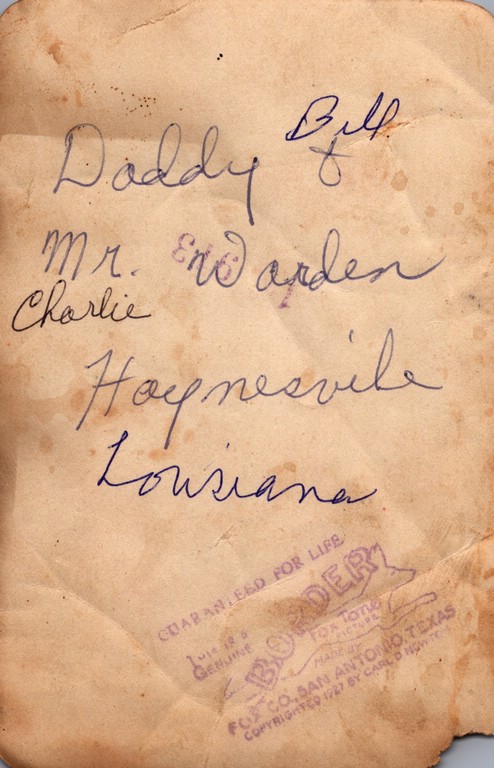 Bill
Daddy &
Mr. Warden
Charlie
Haynesville
Louisiana
GUARANTEED FOR LIFE
THIS IS A
GENUINE
BORDER
FOX TONE
PICTURE
MADE BY
FOX CO. SAN ANTONIO, TEXAS
COPYRIGHTED 1927 BY CARL D. NEWTON